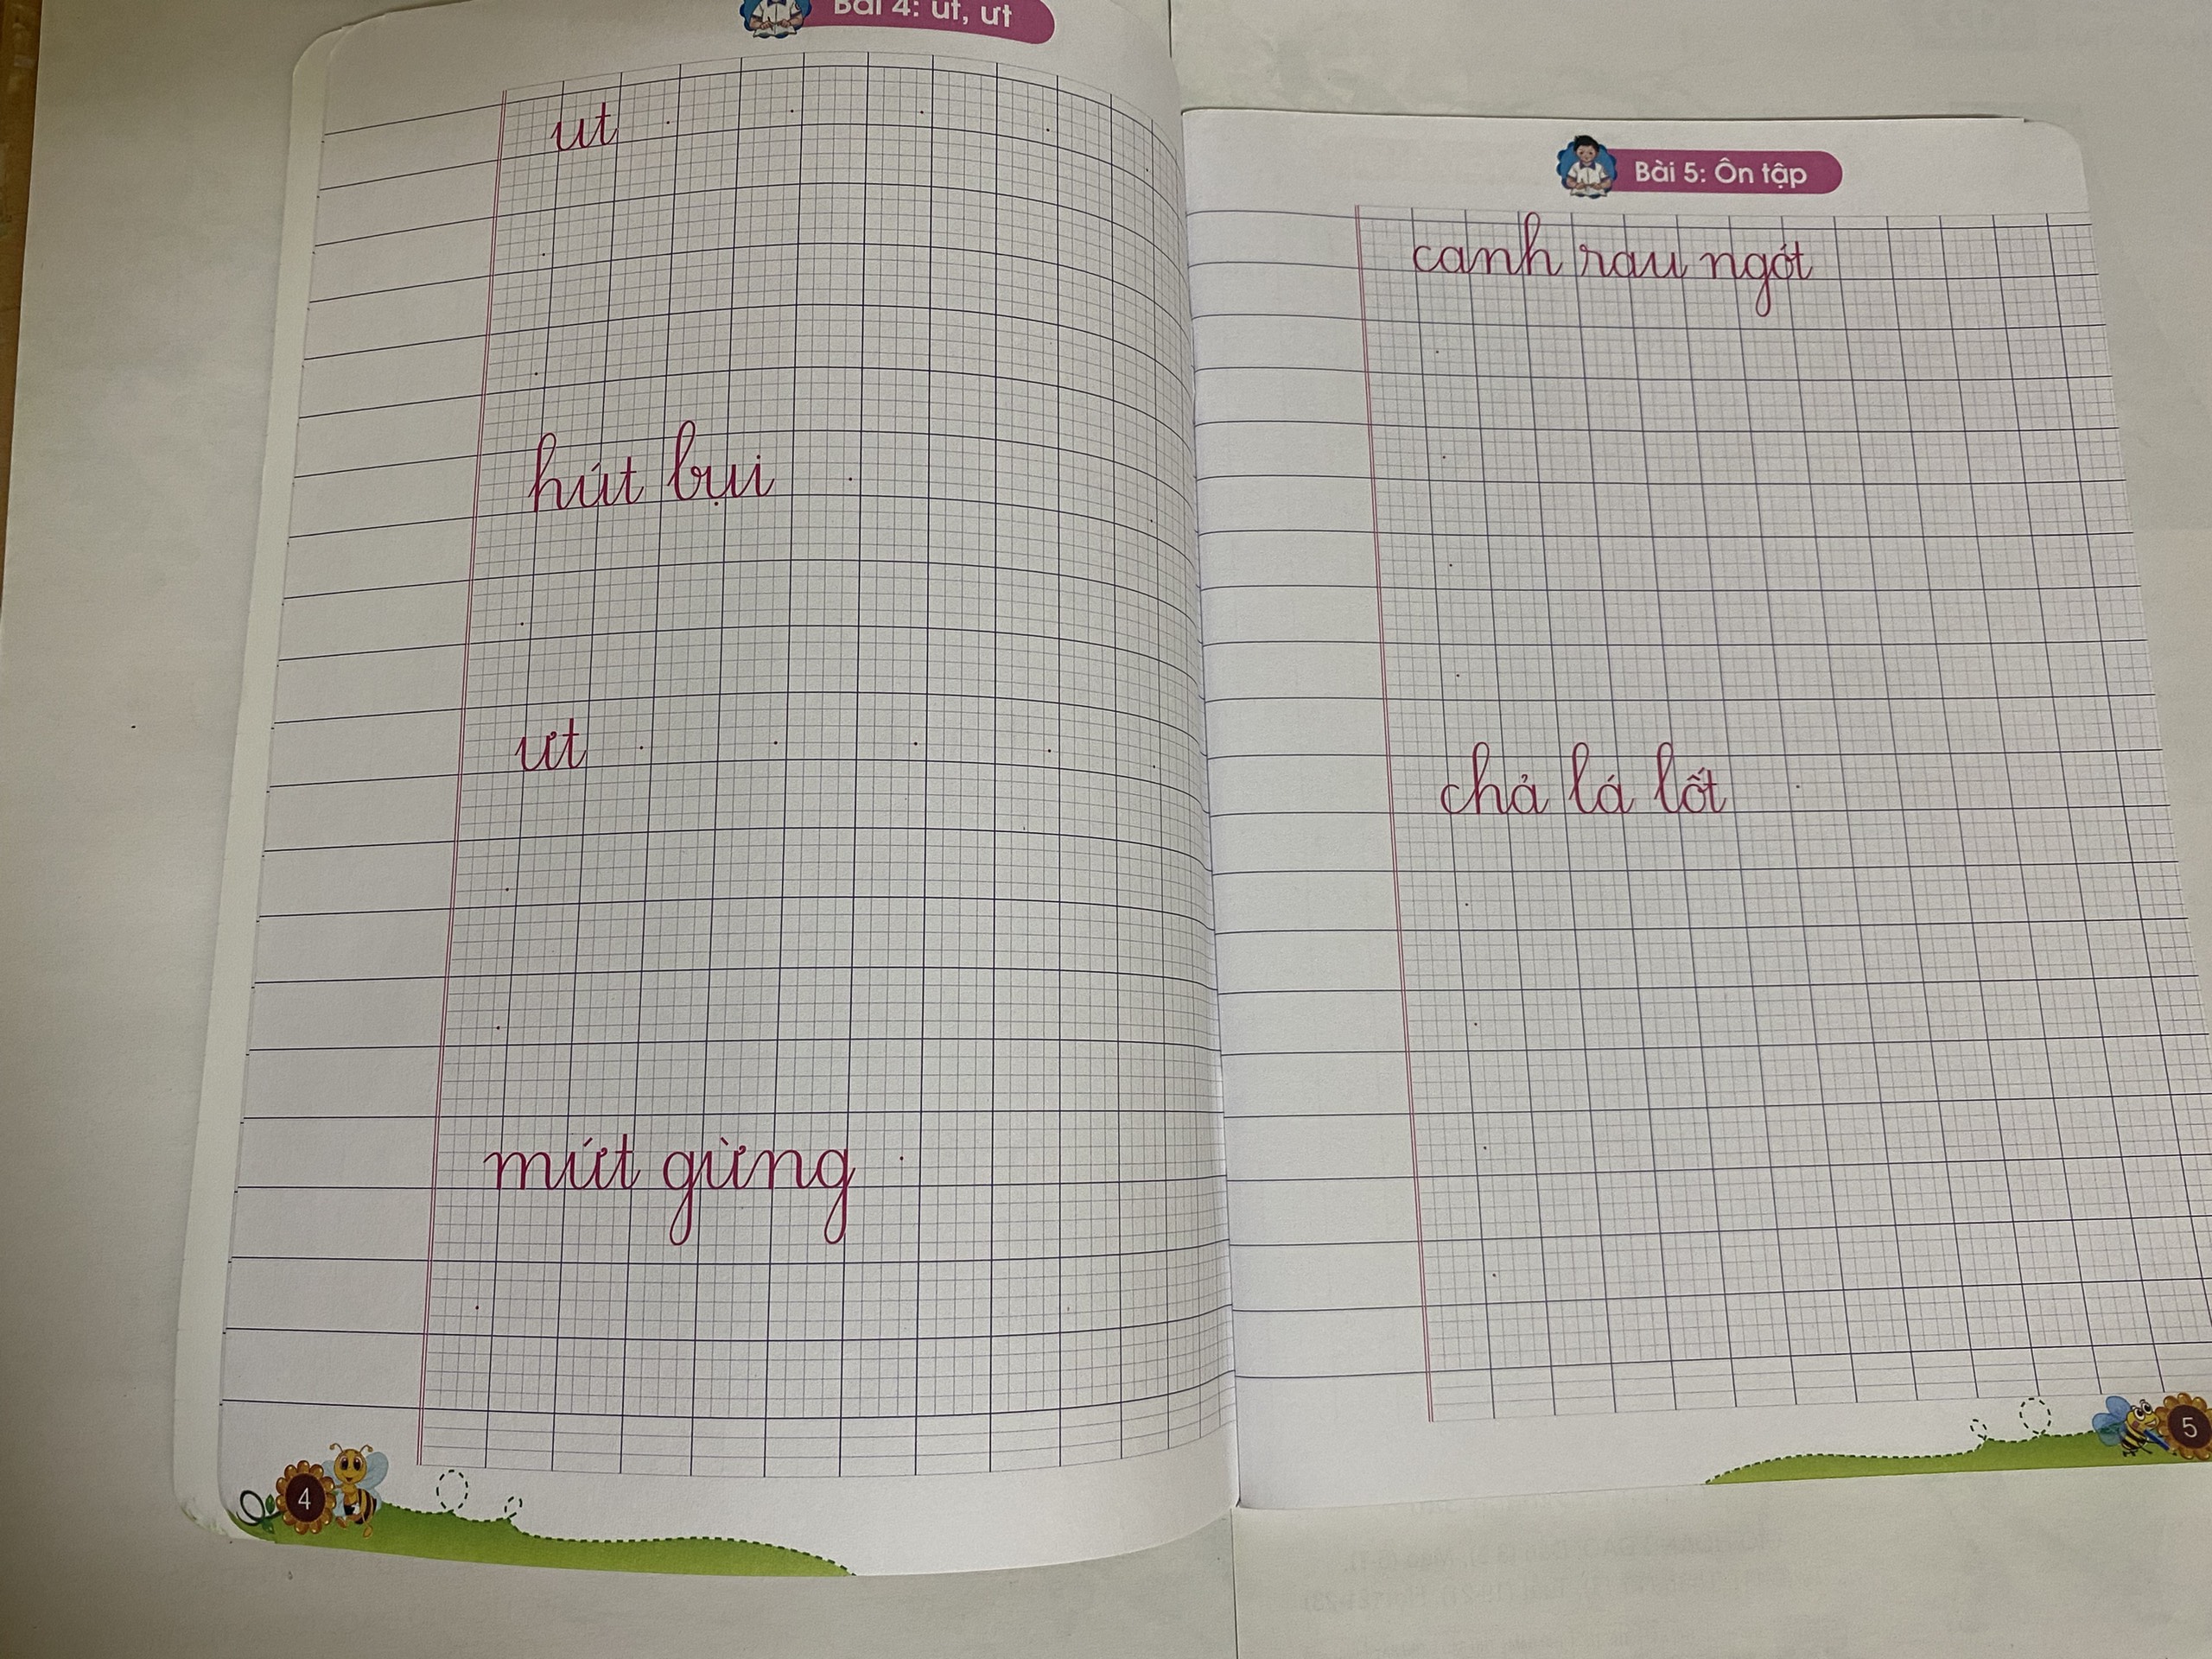 Bài 4: ut, ưt
ut
hút bụi
ưt
mứt gừng
4
Bài 5: Ôn tập
canh rau ngót
chả lá lốt
5